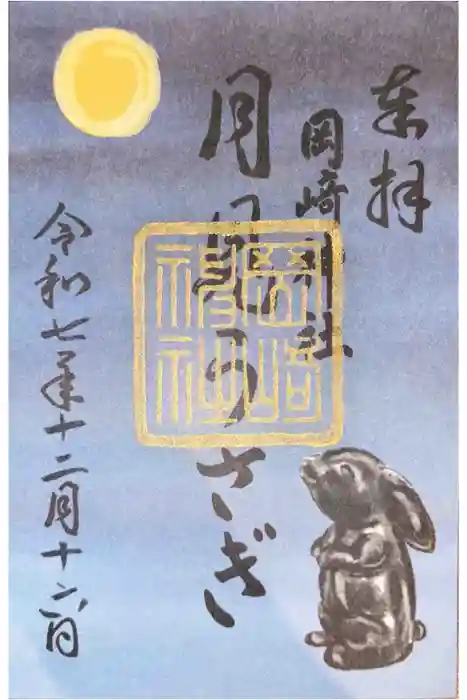 奉拝
岡崎神社
月見うさぎ
岡崎
神社
令和七年十二月十二日